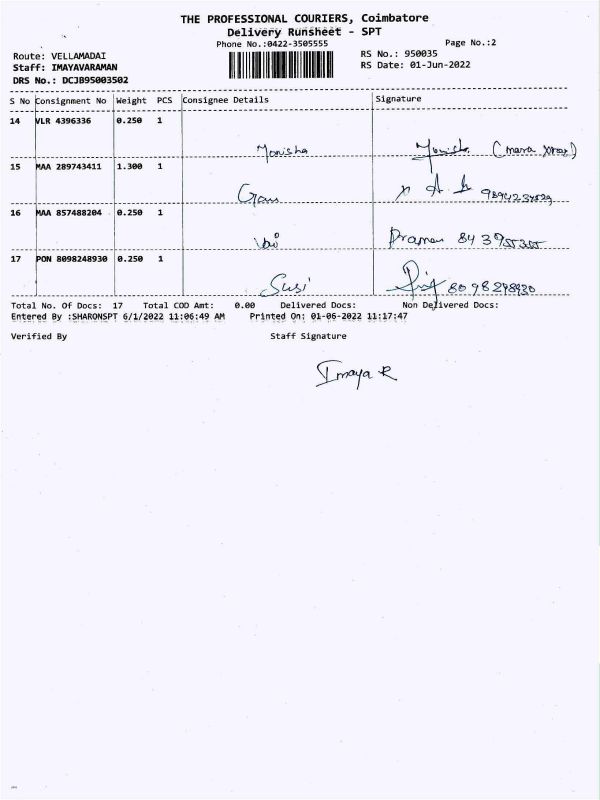 THE PROFESSIONAL COURIERS, Coimbatore
Delivery Runsheet - SPT
Phone No.:0422-3505555
Page No.:2
Route: VELLAMADAI
RS No.: 950035
Staff: IMAYAVARAMAN
RS Date: 01-Jun-2022
DRS No.: DCJB95003502
S No Consignment No Weight PCS Consignee Details Signature
14 VLR 4396336 0.250 1
Monisha Monisha
15 MAA 289743411 1.300 1
Gow
16 MAA 857488204 0.250 1
17 PON 8098248930 0.250 1
Susi 8098248930
Total No. Of Docs: 17 Total COD Amt: 0.00 Delivered Docs: Non Delivered Docs:
Entered By :SHARONSPT 6/1/2022 11:06:49 AM Printed On: 01-06-2022 11:17:47
Verified By Staff Signature
Imaya R